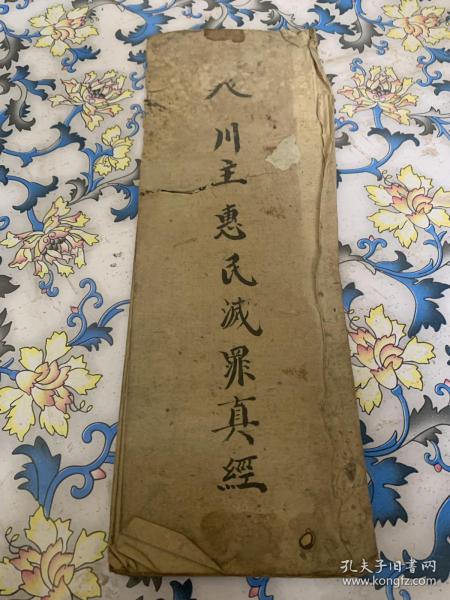 八川主惠民滅罪真經
孔夫子旧书网
www.kongfz.com